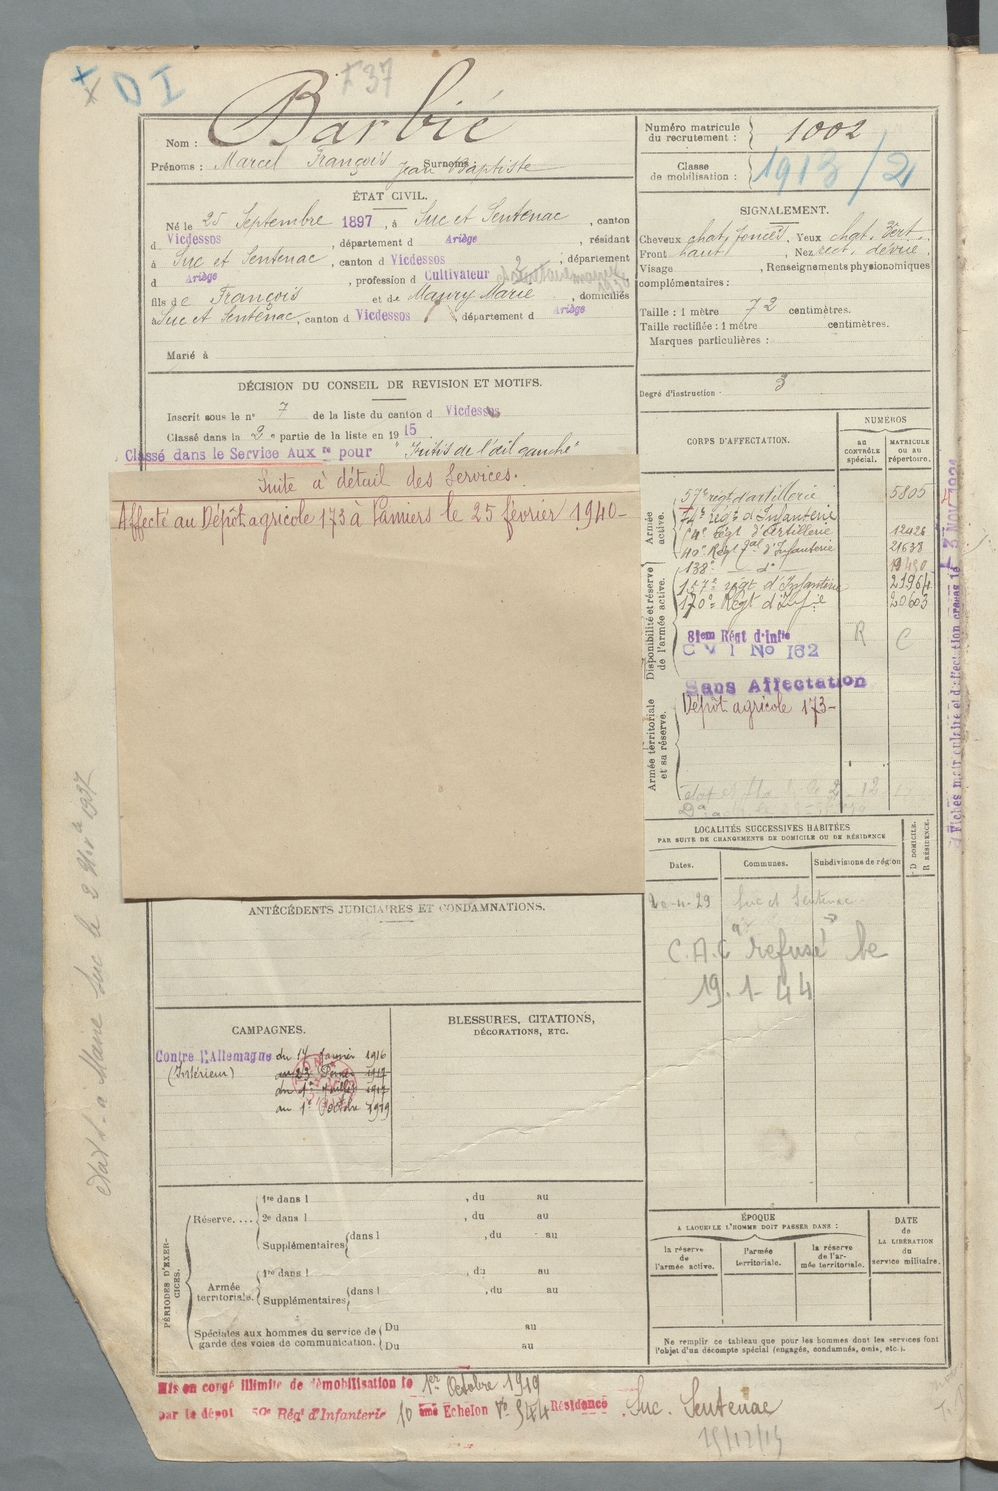 + D I
+ 37
Nom : Barbié
Prénoms : Marcel François Jean Baptiste Surnoms :
Numéro matricule du recrutement : 1002
Classe de mobilisation : 1913/2
ÉTAT CIVIL.
Né le 25 Septembre 1897, à Suc et Sentenac, canton
d Vicdessos, département d Ariège, résidant
à Suc et Sentenac, canton d Vicdessos, département
d Ariège, profession d Cultivateur
fils de François et de Maury Marie, domiciliés
à Suc et Sentenac, canton d Vicdessos, département d Ariège
Marié à
SIGNALEMENT.
Cheveux chat. foncés, Yeux chat. vert.
Front haut, Nez rect. dévié.
Visage , Renseignements physionomiques
complémentaires :
Taille : 1 mètre 72 centimètres.
Taille rectifiée : 1 mètre centimètres.
Marques particulières :
Degré d'instruction 3
DÉCISION DU CONSEIL DE REVISION ET MOTIFS.
Inscrit sous le n° 7 de la liste du canton d Vicdessos
Classé dans la 2e partie de la liste en 1915
Classé dans le Service Auxre pour "Iritis de l'œil gauche"
Suite à détail des Services.
Affecté au Dépôt agricole 173 à Pamiers le 25 février 1940-
CORPS D'AFFECTATION.
NUMÉROS
AU CONTRÔLE spécial.
MATRICULE OU AU répertoire.
Armée active.
57e régt d'artillerie 5805
régt d'Infanterie
Régt d'Artillerie
40e Régt d'Infanterie 21638
Disponibilité et réserve de l'armée active.
138e d°
157e régt d'Infanterie 21964
170e Régt d'Infie 20603
81em Régt d'Infie R C
C V I No 162
Sans Affectation
Armée territoriale et sa réserve.
Dépôt agricole 173-
LOCALITÉS SUCCESSIVES HABITÉES
PAR SUITE DE CHANGEMENTS DE DOMICILE OU DE RÉSIDENCE
Dates.
Communes.
Subdivisions de région
D DOMICILE.
R RÉSIDENCE.
4-29 Suc et Sentenac
C.A.C refusé le
19-1-44
ANTÉCÉDENTS JUDICIAIRES ET CONDAMNATIONS.
CAMPAGNES.
Contre l'Allemagne du 14 Janvier 1916
(Intérieur) 1917
du 1er Juillet 1917
au 1er Octobre 1919
BLESSURES, CITATIONS,
DÉCORATIONS, ETC.
PÉRIODES D'EXERCICES.
Réserve....
1re dans l , du au
2e dans l , du au
Supplémentaires dans l , du au
Armée territoriale.
1re dans l , du au
Supplémentaires dans l , du au
Spéciales aux hommes du service de garde des voies de communication.
Du au
Du au
ÉPOQUE
A LAQUELLE L'HOMME DOIT PASSER DANS :
la réserve de l'armée active.
l'armée territoriale.
la réserve de l'armée territoriale.
DATE de LA LIBÉRATION du service militaire.
Ne remplir ce tableau que pour les hommes dont les services font
l'objet d'un décompte spécial (engagés, condamnés, omis, etc.).
Mis en congé illimité de démobilisation le 1er Octobre 1919
par le dépot 50e Régt d'Infanterie 10 ème Echelon No 544 Résidence Suc. Sentenac